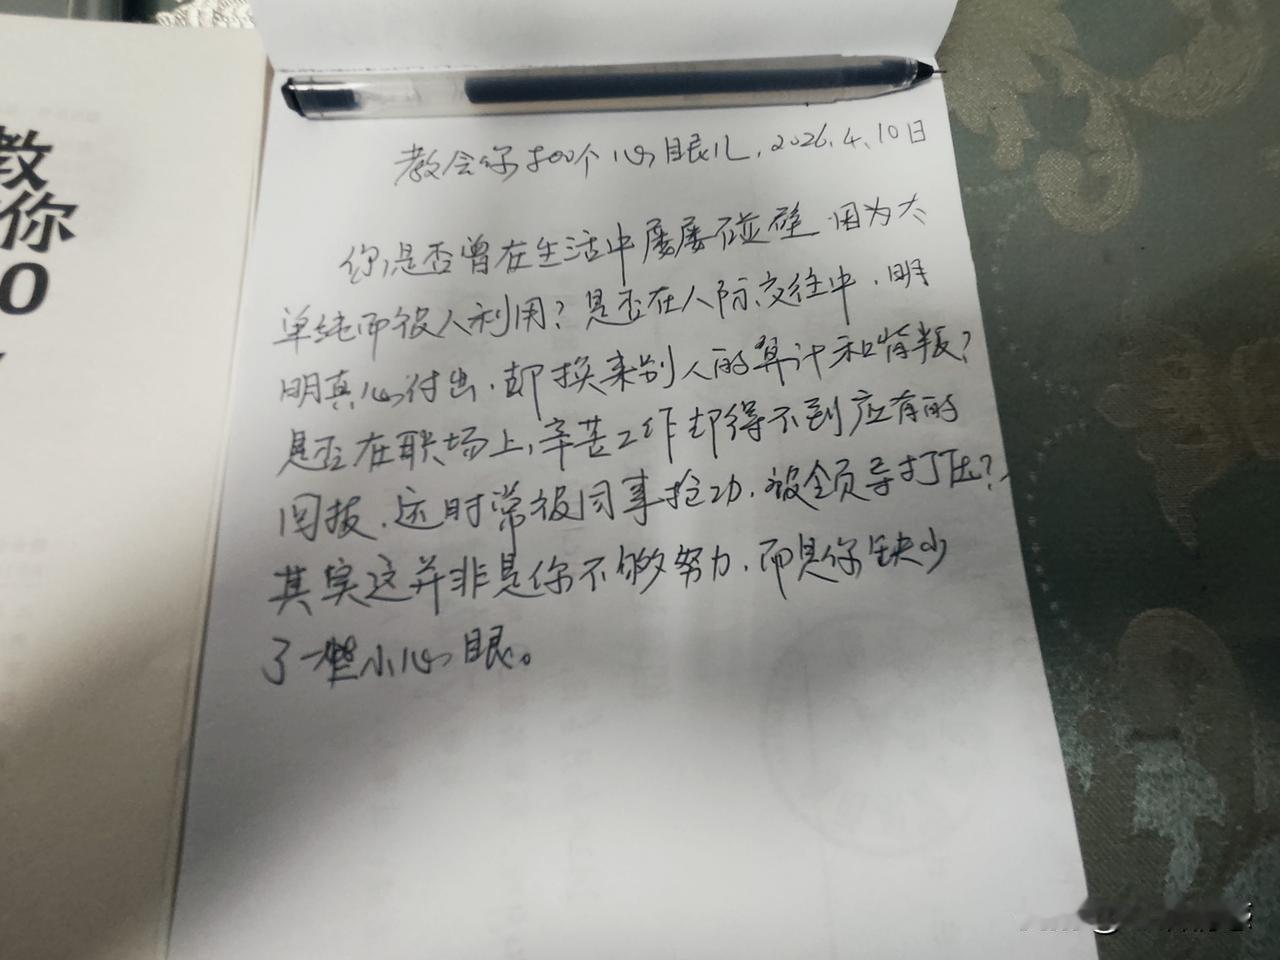 教
你
0
教会你100个心眼儿，2026.4.10日
你是否曾在生活中屡屡碰壁 因为太
单纯而被人利用？是否在人际交往中，明
明真心付出，却换来别人的算计和背叛？
是否在职场上，辛苦工作却得不到应有的
回报，还时常被同事抢功，被领导打压？
其实这并非是你不够努力，而是你缺少
了一些小心眼。